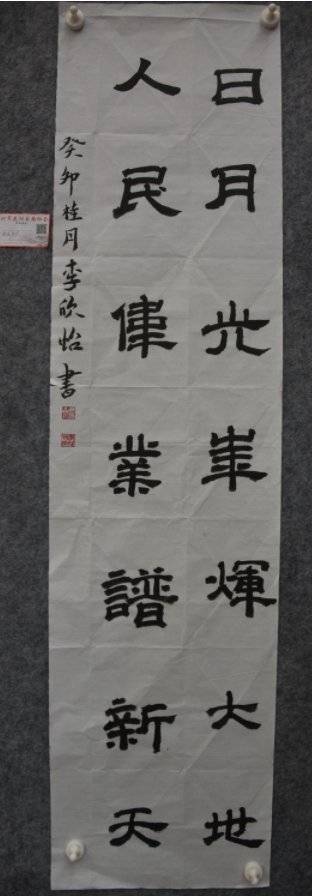 日月光華輝大地
人民偉業譜新天
癸卯桂月李欣怡書